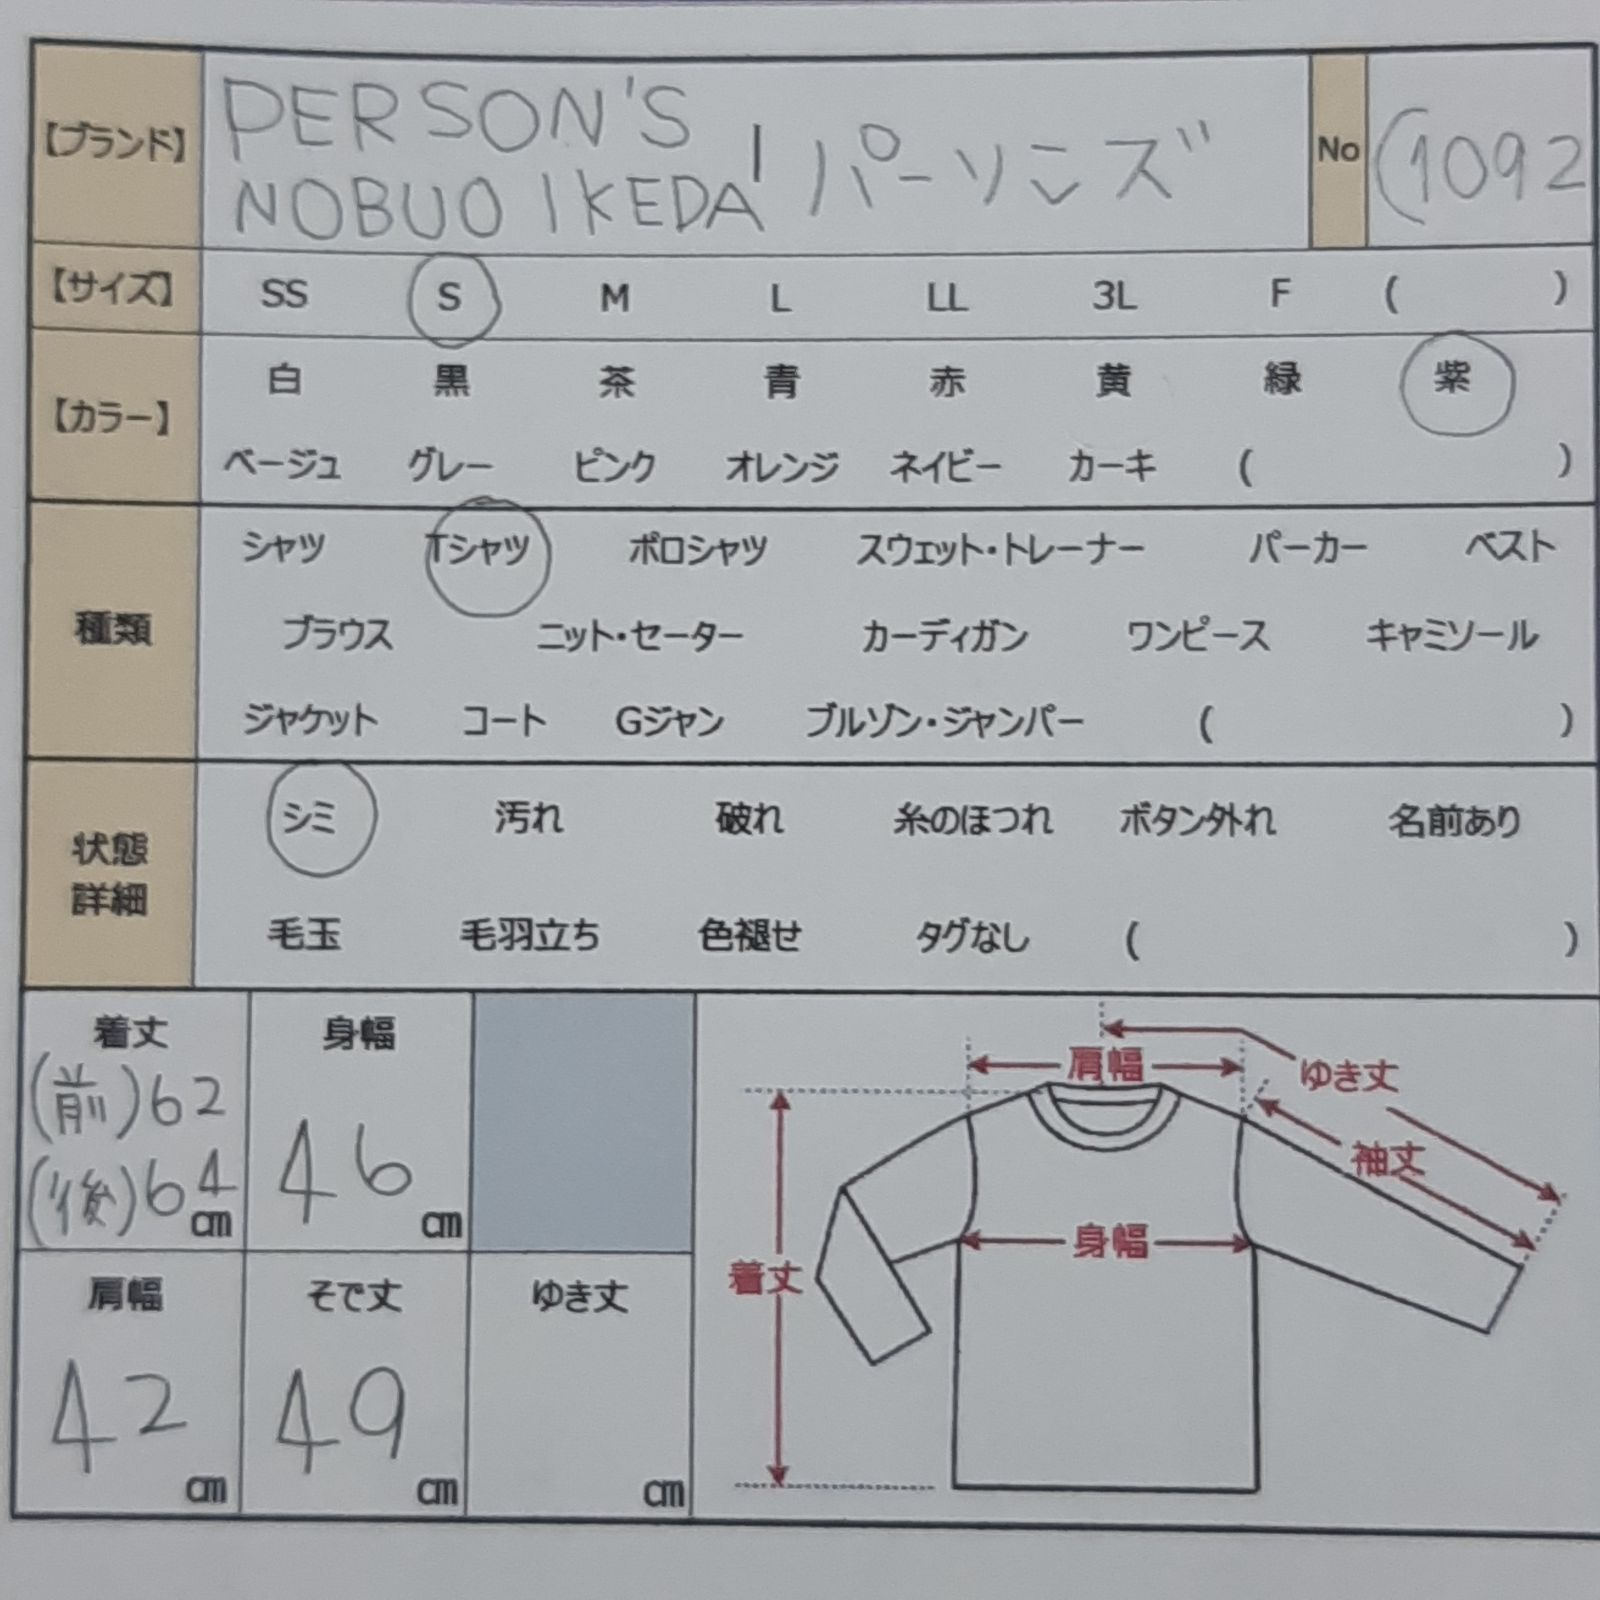 【ブランド】 PERSON'S パーソンズ No (1092
NOBUO IKEDA
【サイズ】 SS S M L LL 3L F ( )
【カラー】 白 黒 茶 青 赤 黄 緑 紫
ベージュ グレー ピンク オレンジ ネイビー カーキ ( )
種類 シャツ Tシャツ ポロシャツ スウェット・トレーナー パーカー ベスト
ブラウス ニット・セーター カーディガン ワンピース キャミソール
ジャケット コート Gジャン ブルゾン・ジャンパー ( )
状態
詳細
シミ 汚れ 破れ 糸のほつれ ボタン外れ 名前あり
毛玉 毛羽立ち 色褪せ タグなし ( )
着丈 身幅
(前)62
(後)64 cm 46 cm
肩幅 そで丈 ゆき丈
42 cm 49 cm cm
肩幅 ゆき丈
袖丈
身幅
着丈